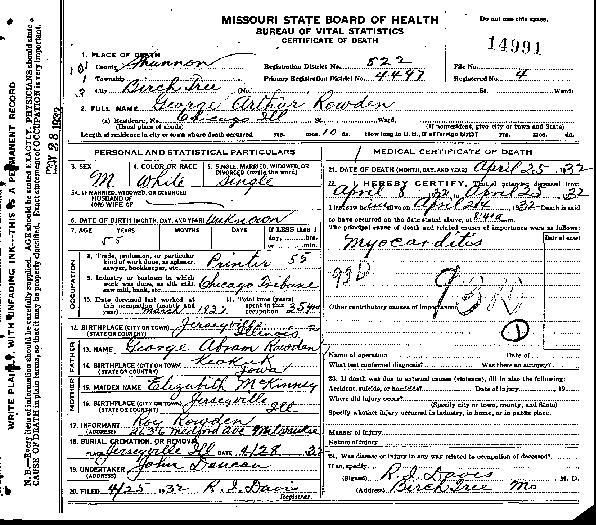 MISSOURI STATE BOARD OF HEALTH
BUREAU OF VITAL STATISTICS
CERTIFICATE OF DEATH
Do not use this space.
14991
1. PLACE OF DEATH
County Shannon
Registration District No. 522
File No.
Township
Primary Registration District No. 4447
Registered No. 4
City Birch Tree (No. St. Ward)
2. FULL NAME George Arthur Rowden
(a) Residence, No. Chicago Ill St. Ward.
(Usual place of abode) (If nonresident, give city or town and State)
Length of residence in city or town where death occurred yrs. mos. 10 ds. How long in U. S., if of foreign birth? yrs. mos. ds.
PERSONAL AND STATISTICAL PARTICULARS
3. SEX M
4. COLOR OR RACE White
5. SINGLE, MARRIED, WIDOWED, OR DIVORCED (write the word) Single
5A. IF MARRIED, WIDOWED, OR DIVORCED
HUSBAND OF
(OR) WIFE OF
6. DATE OF BIRTH (MONTH, DAY, AND YEAR) Unknown
7. AGE YEARS MONTHS DAYS If LESS than 1 day, hrs. min.
55
OCCUPATION
8. Trade, profession, or particular kind of work done, as spinner, sawyer, bookkeeper, etc. Printer 55
9. Industry or business in which work was done, as silk mill, saw mill, bank, etc. Chicago Tribune
10. Date deceased last worked at this occupation (month and year) March 1932
11. Total time (years) spent in this occupation
12. BIRTHPLACE (CITY OR TOWN) Jerseyville
(STATE OR COUNTRY) Illinois
FATHER
13. NAME George Abram Rowden
14. BIRTHPLACE (CITY OR TOWN) Keokuk
(STATE OR COUNTRY) Iowa
MOTHER
15. MAIDEN NAME Elizabeth McKinney
16. BIRTHPLACE (CITY OR TOWN) Jerseyville
(STATE OR COUNTRY) Ill.
17. INFORMANT Roy Rowden
(ADDRESS)
18. BURIAL, CREMATION, OR REMOVAL
PLACE Jerseyville Ill DATE 4/28 32
19. UNDERTAKER John Duncan
(ADDRESS)
20. FILED 4/25 1932 R. I. Davis
Registrar.
MEDICAL CERTIFICATE OF DEATH
21. DATE OF DEATH (MONTH, DAY, AND YEAR) April 25 1932
22. I HEREBY CERTIFY, That I attended deceased from
April 8 1932 April 25 1932
I last saw alive on April 24 1932 Death is said
to have occurred on the date stated above, at
The principal cause of death and related causes of importance were as follows:
Date of onset
Myocarditis
93D
Other contributory causes of importance:
1
Name of operation Date of
What test confirmed diagnosis? Was there an autopsy?
23. If death was due to external causes (violence), fill in also the following:
Accident, suicide, or homicide? Date of injury 19
Where did injury occur?
(Specify city or town, county, and State)
Specify whether injury occurred in industry, in home, or in public place.
Manner of injury
Nature of injury
24. Was disease or injury in any way related to occupation of deceased?
If so, specify
(Signed) R. I. Davis M. D.
(Address) Birch Tree Mo
MAY 28 1932
WRITE PLAINLY, WITH UNFADING INK—THIS IS A PERMANENT RECORD
N. B.—Every item of information should be carefully supplied. AGE should be stated EXACTLY. PHYSICIANS should state
CAUSE OF DEATH in plain terms, so that it may be properly classified. Exact statement of OCCUPATION is very important.